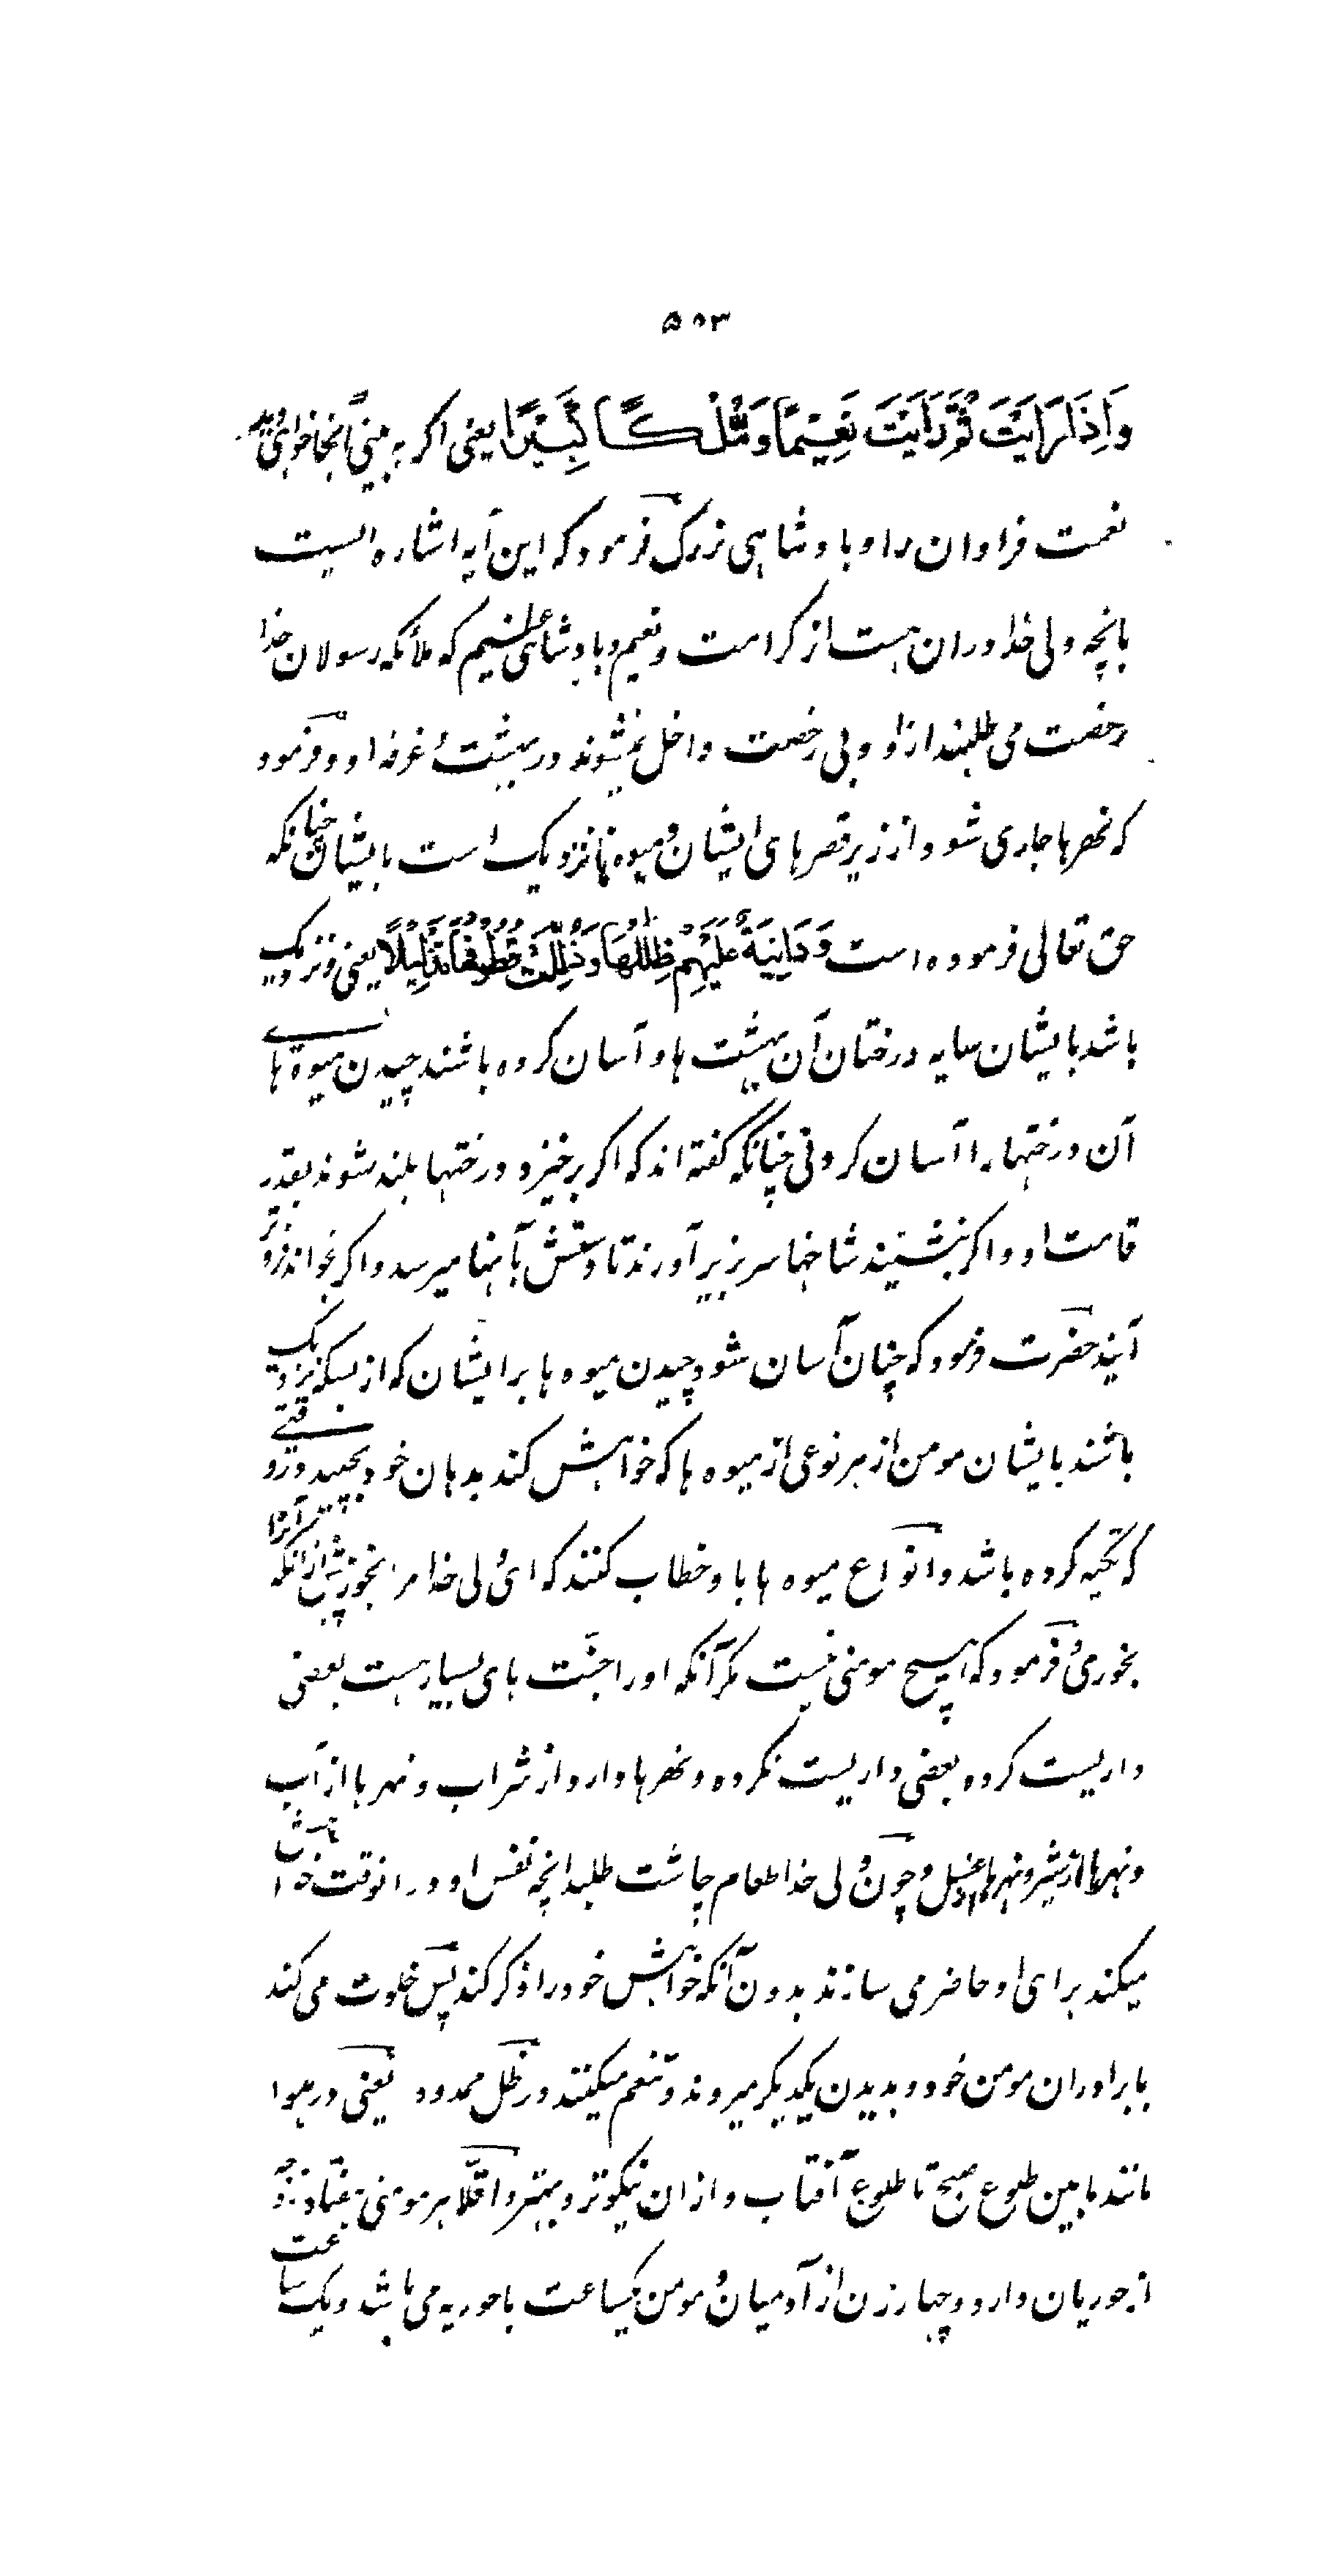 ۵۰۳
وَاِذَا رَاَیْتَ ثَمَّ رَاَیْتَ نَعِیْمًا وَمُلْکًا کَبِیْرًا یعنی اکر به بینی آنجا خواهی دید
نعمت فراوان را و بادشاهی بزرک فرمود که این آیه اشاره ایست
بانچه ولی خدا دران هست از کرامت و نعیم و بادشاهی عظیم که ملأکه رسولان خدا
رخصت می طلبند ازاو و بی رخصت داخل نمیشوند در بهشت غرفه او و فرمود
که نهرها جاری شود از زیر قصرهای ایشان و میوه ها نزدیک است بایشان چنانکه
حق تعالی فرموده است وَدَانِیَةً عَلَیْهِمْ ظِلٰلُهَا وَذُلِّلَتْ قُطُوْفُهَا تَذْلِیْلًا یعنی و نزدیک
باشد بایشان سایه درختان آن بهشت ها و آسان کرده باشند چیدن میوه های
آن درختها را آسان کردنی چنانکه کفته اند که اکر برخیزد درختها بلند شوند بقدر
قامت او و اکر بنشیند شاخها سر بزیر آورند تا دستش بآنها میرسد و اکر بخواند فرو تر
آیند حضرت فرمود که چنان آسان شود چیدن میوه ها بر ایشان که از بسکه نزدیک
باشند بایشان مومن از هر نوعی از میوه ها که خواهش کند بدهان خود بچیند در وقتی
که تکیه کرده باشد و انواع میوه ها با و خطاب کنند که ای ولی خدا مرا بخور پیش ازانکه آنرا
بخوری و فرمود که هیچ مومنی نیست مکر آنکه اورا جنّت های بسیار هست بعضی
داربست کرده بعضی داربست نکرده و نهرها دارد از شراب و نهرها از آب
و نهرها از شیر و نهرها از عسل و چون ولی خدا طعام چاشت طلبد انچه نفس او در انوقت خواهش
میکند برای او حاضر می سازند بدون آنکه خواهش خود را ذکر کند پس خلوت می کند
با برادران مومن خود و بدیدن یکدیکر میروند و تنعم میکنند در ظل ممدود یعنی در هوا
مانند ما بین طلوع صبح تا طلوع آفتاب و ازان نیکوتر و بهتر و اقلًا هر مومنی هفتاد زوجه
از حوریان دارد و چهار زن از آدمیان و مومن یکساعت با حوریه می باشد و یک ساعت